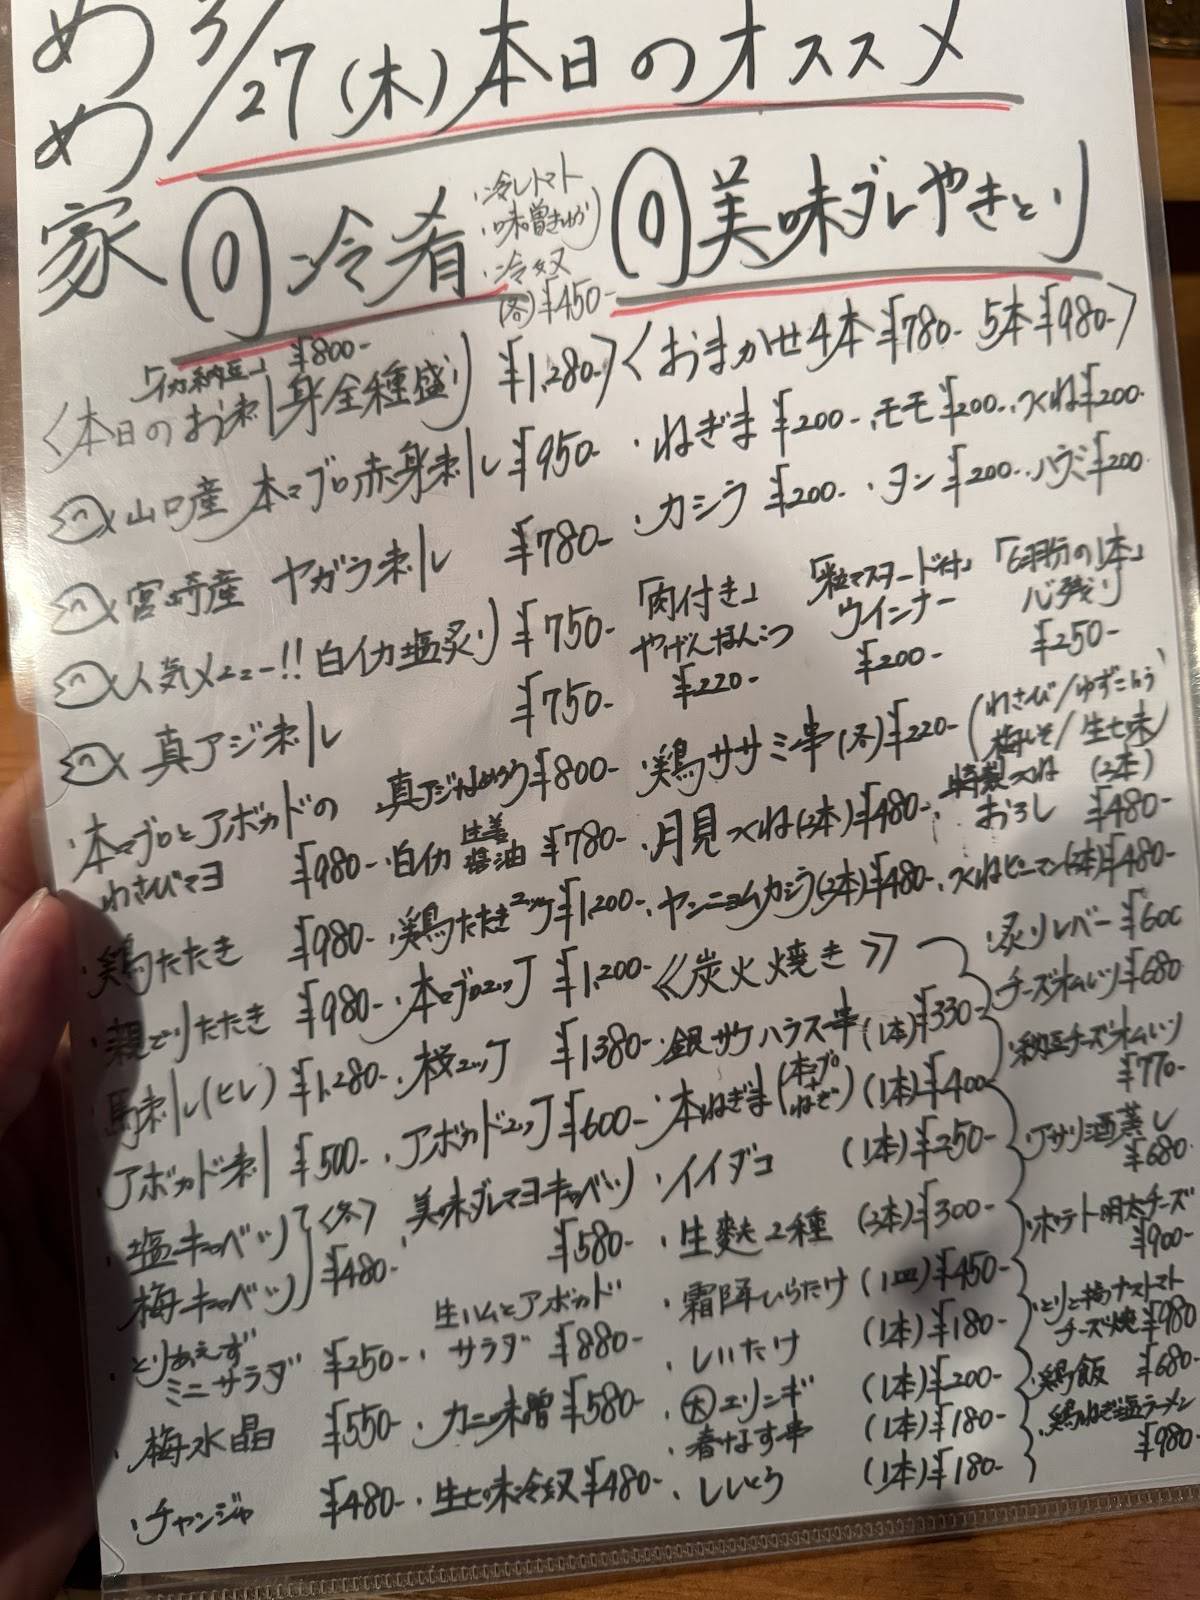 めめ家
3/27(木)本日のオススメ
冷肴
・冷しトマト
・味噌きゅうり
・冷奴
(各)¥450-
「イカ納豆」 ¥800-
〈本日のお刺身全種盛り ¥1,280-〉
山口産 本マグロ赤身刺し ¥950-
宮崎産 ヤガラ刺し ¥780-
人気メニュー!!白イカ塩炙り ¥750-
真アジ刺し ¥750-
真アジなめろう ¥800-
・本マグロとアボカドの
わさびマヨ ¥980-
・白イカ生姜醤油 ¥780-
・鶏たたき ¥980-
・鶏たたきユッケ ¥1,200-
・親どりたたき ¥980-
・本マグロユッケ ¥1,200-
・馬刺し(ヒレ) ¥1,280-
・桜ユッケ ¥1,380-
・アボカド刺 ¥500-
・アボカドユッケ ¥600-
・塩キャベツ
・梅キャベツ
〈各〉¥480-
・美味ダレマヨキャベツ
¥580-
・とりあえず
ミニサラダ ¥250-
・生ハムとアボカド
サラダ ¥880-
・梅水晶 ¥550-
・カニ味噌 ¥580-
・チャンジャ ¥480-
・生七味冷奴 ¥480-
美味ダレやきとり
〈おまかせ4本¥780- 5本¥980-〉
・ねぎま¥200-・モモ¥200-・つくね¥200-
・カシラ¥200-・タン¥200-・ハツ¥200-
「肉付き」
やげんなんこつ
¥220-
「粒マスタード付」
ウインナー
¥200-
「6羽分の1本」
心残り
¥250-
・鶏ササミ串(各)¥220-
(わさび/ゆずこしょう
梅しそ/生七味)
・月見つくね(2本)¥480-
・特製つくね (2本)
おろし ¥480-
・ヤンニョムカシラ(2本)¥480-
・つくねピーマン(2本)¥480-
《炭火焼き》
・銀サケハラス串(1本)¥330-
・本ねぎま(本マグロ+ねぎ)(1本)¥400-
・イイダコ (1本)¥250-
・生麩2種 (2本)¥300-
・霜降ひらたけ(1皿)¥450-
・しいたけ (1本)¥180-
・(大)エリンギ (1本)¥200-
・春なす串 (1本)¥180-
・ししとう (1本)¥180-
・炙りレバー ¥600
・チーズオムレツ¥680
・納豆チーズオムレツ
¥770-
・アサリ酒蒸し
¥680-
・ポテト明太チーズ
¥900-
・とりと揚ナストマト
チーズ焼¥980
・鶏飯 ¥680-
・鶏ねぎ塩ラーメン
¥980-